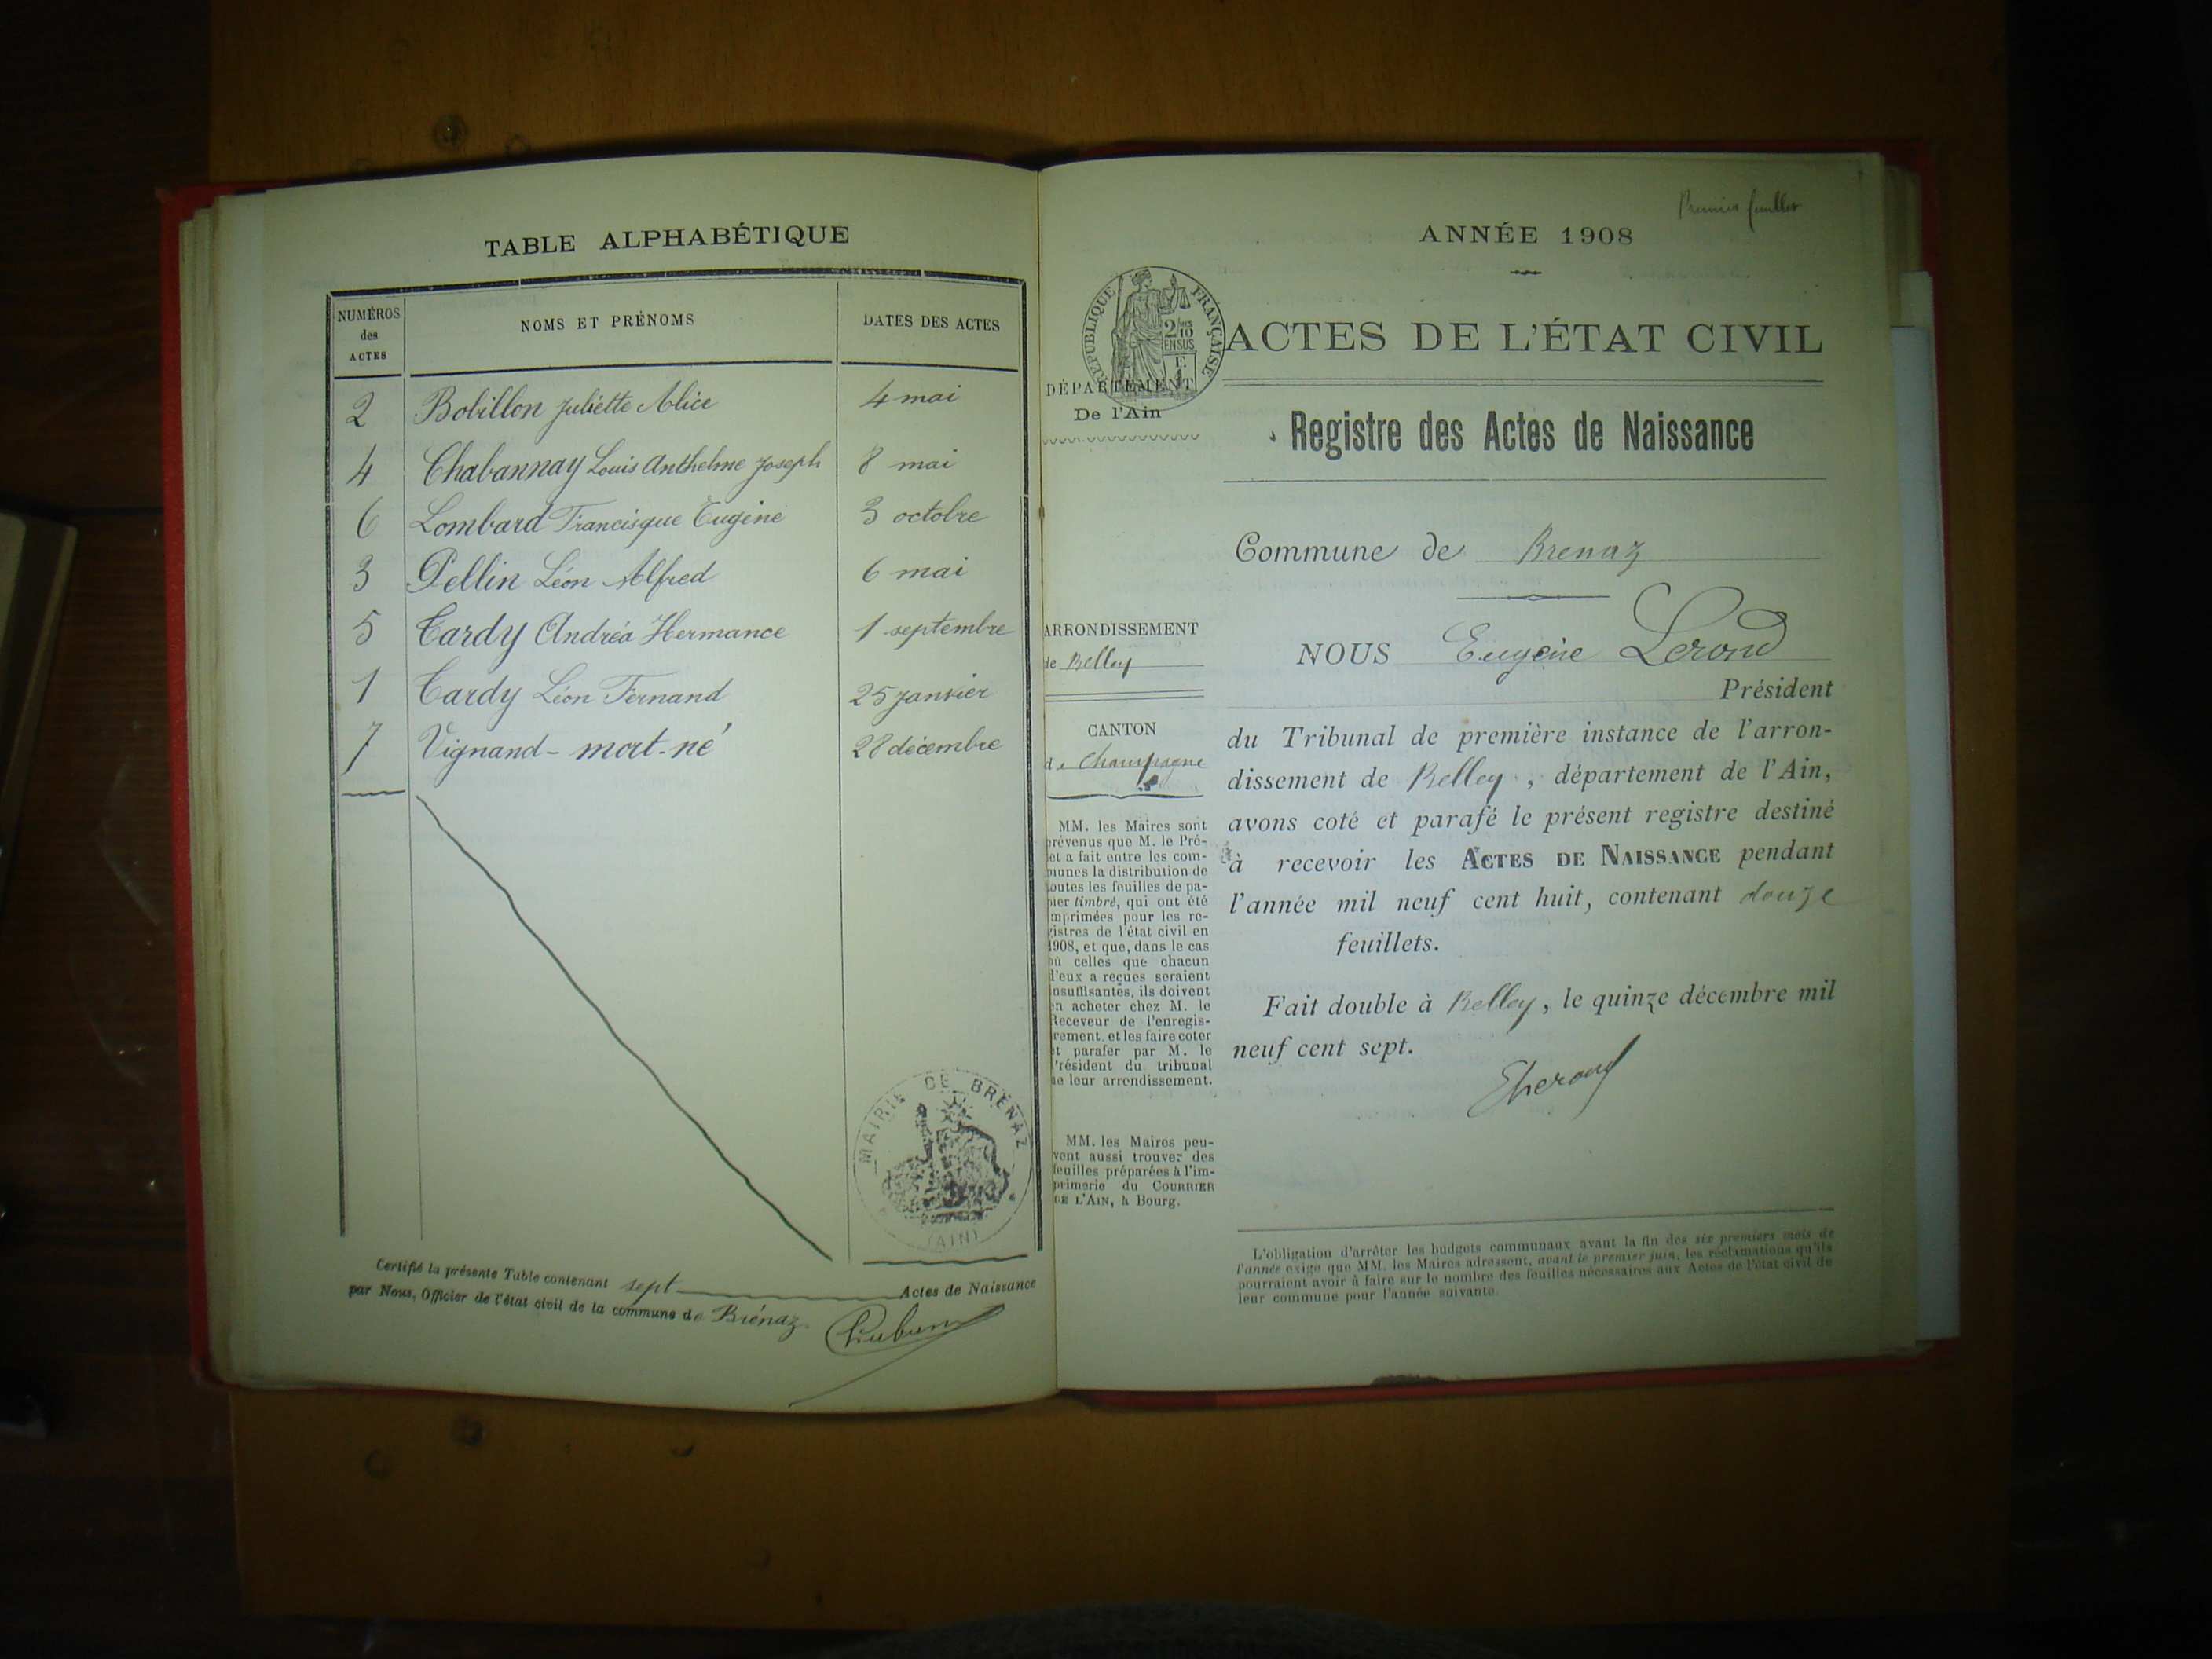 TABLE ALPHABÉTIQUE
NUMÉROS des ACTES
NOMS ET PRÉNOMS
DATES DES ACTES
2 Bobillon Juliette Alice 4 mai
4 Chabannay Louis Anthelme Joseph 8 mai
6 Lombard Francisque Eugène 3 octobre
3 Pellin Léon Alfred 6 mai
5 Tardy Andréa Hermance 1 septembre
1 Tardy Léon Fernand 25 janvier
7 Vignand - mort-né 28 décembre
MAIRIE DE BRÉNAZ
(AIN)
Certifié la présente Table contenant sept Actes de Naissance
par Nous, Officier de l'état civil de la commune de Brénaz
Premier feuillet
ANNÉE 1908
RÉPUBLIQUE FRANÇAISE
2/10
EN SUS
ACTES DE L'ÉTAT CIVIL
DÉPARTEMENT
De l'Ain
Registre des Actes de Naissance
Commune de Brenaz
ARRONDISSEMENT
de Belley
CANTON
de Champagne
MM. les Maires sont
prévenus que M. le Pré-
fet a fait entre les com-
munes la distribution de
toutes les feuilles de pa-
pier timbré, qui ont été
imprimées pour les re-
gistres de l'état civil en
1908, et que, dans le cas
où celles que chacun
d'eux a reçues seraient
insuffisantes, ils doivent
en acheter chez M. le
Receveur de l'enregis-
trement, et les faire coter
et parafer par M. le
Président du tribunal
de leur arrondissement.
MM. les Maires peu-
vent aussi trouver des
feuilles préparées à l'im-
primerie du COURRIER
DE L'AIN, à Bourg.
NOUS Eugène Lerond
Président
du Tribunal de première instance de l'arron-
dissement de Belley, département de l'Ain,
avons coté et parafé le présent registre destiné
à recevoir les ACTES DE NAISSANCE pendant
l'année mil neuf cent huit, contenant douze
feuillets.
Fait double à Belley, le quinze décembre mil
neuf cent sept.
ELerond
L'obligation d'arrêter les budgets communaux avant la fin des six premiers mois de
l'année exige que MM. les Maires adressent, avant le premier juin, les réclamations qu'ils
pourraient avoir à faire sur le nombre des feuilles nécessaires aux Actes de l'état civil de
leur commune pour l'année suivante.